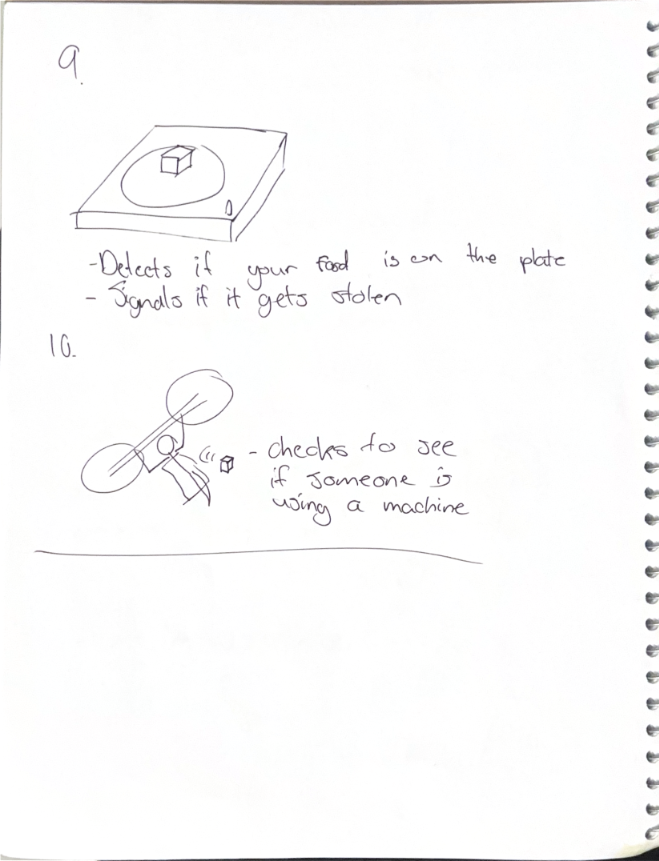 9.
-Detects if your food is on the plate
- Signals if it gets stolen
10.
- checks to see
if someone is
using a machine